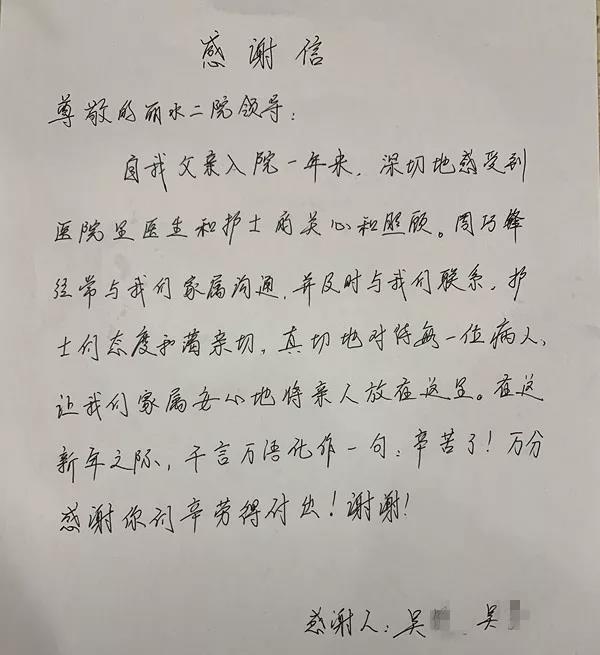 感谢信
尊敬的丽水二院领导：
自我父亲入院一年来，深切地感受到
医院里医生和护士的关心和照顾。周巧锋
经常与我们家属沟通，并及时与我们联系，护
士们态度和蔼亲切，真切地对待每一位病人，
让我们家属安心地将亲人放在这里。在这
新年之际，千言万语化作一句：辛苦了！万分
感谢你们辛劳得付出！谢谢！
感谢人：吴 吴